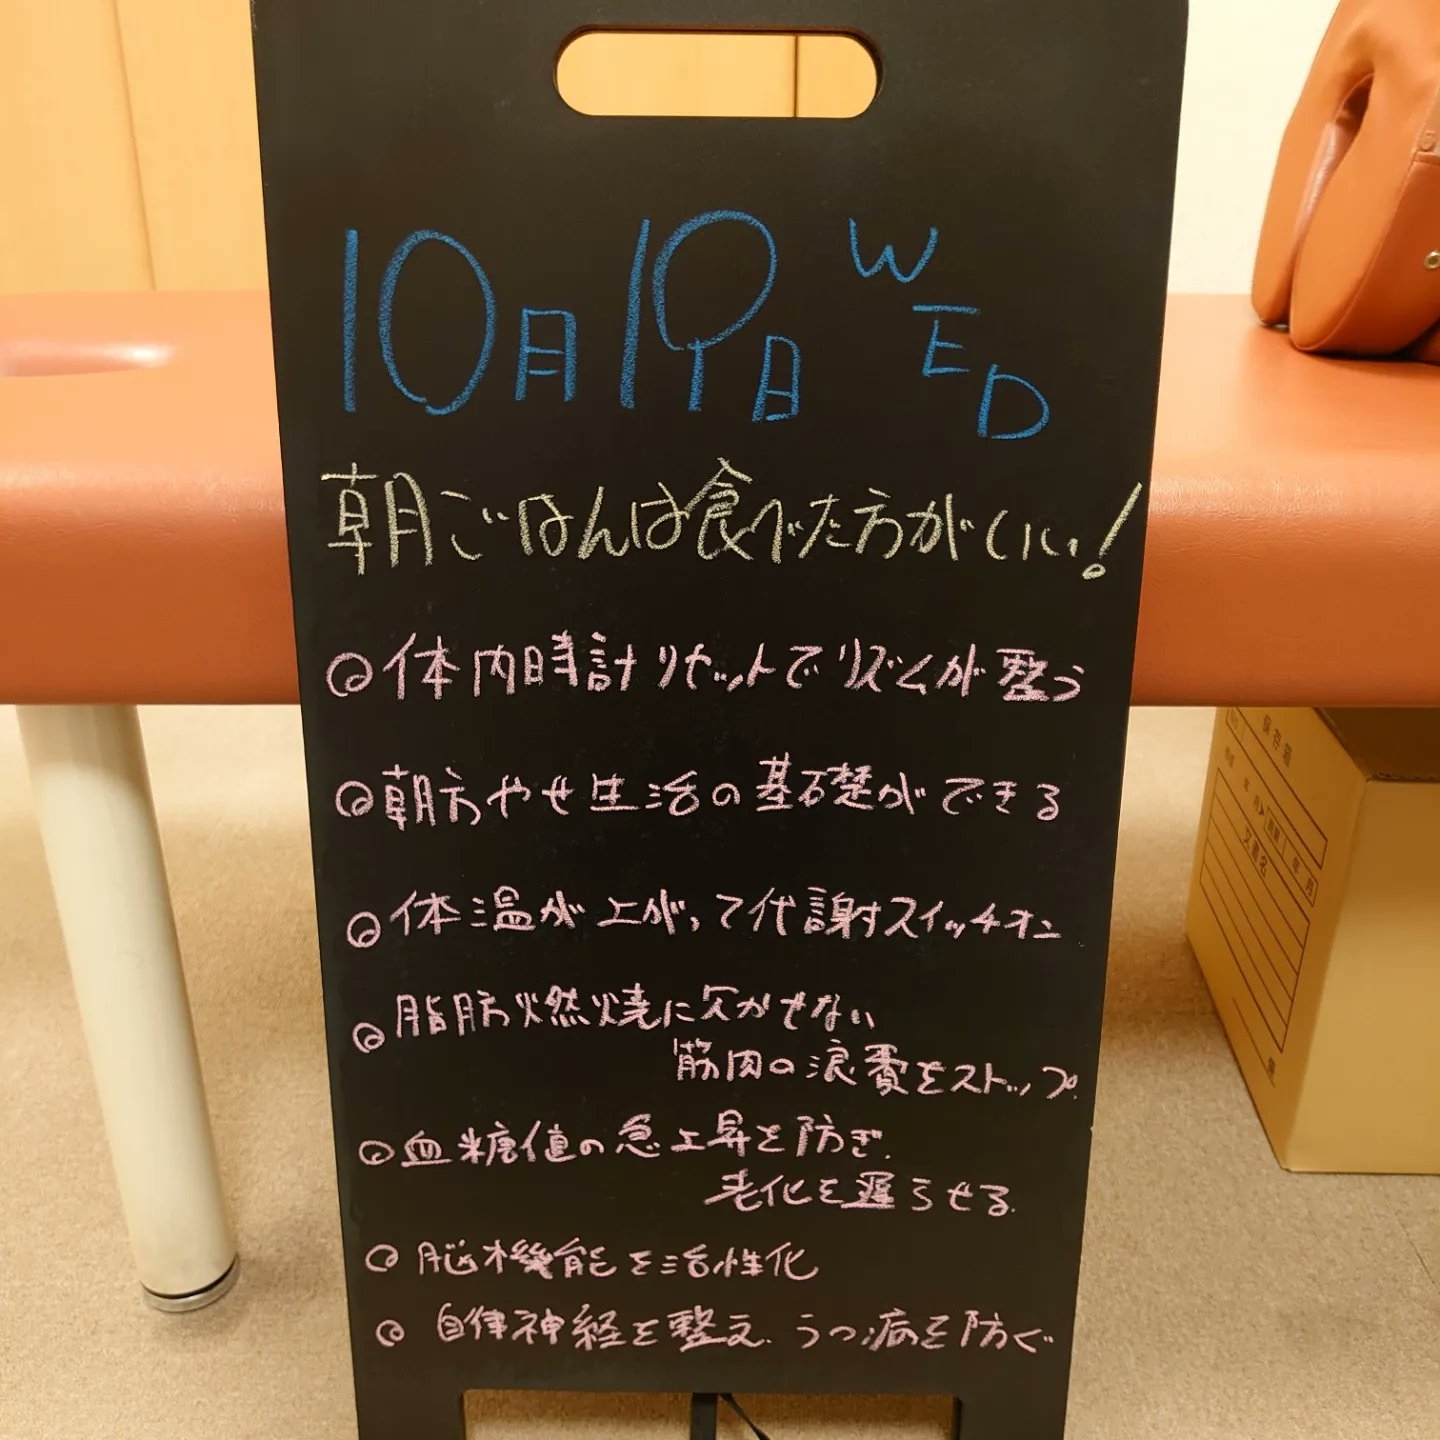 10月19日 WED
朝ごはんは食べた方がいい!
◎体内時計リセットでリズムが整う
◎朝方やせ生活の基礎ができる
◎体温が上がって代謝スイッチオン
◎脂肪燃焼に欠かせない
筋肉の浪費をストップ.
◎血糖値の急上昇を防ぎ.
老化を遅らせる.
◎脳機能を活性化
◎自律神経を整え.うつ病を防ぐ
保存箱
No.
年 月
文書名